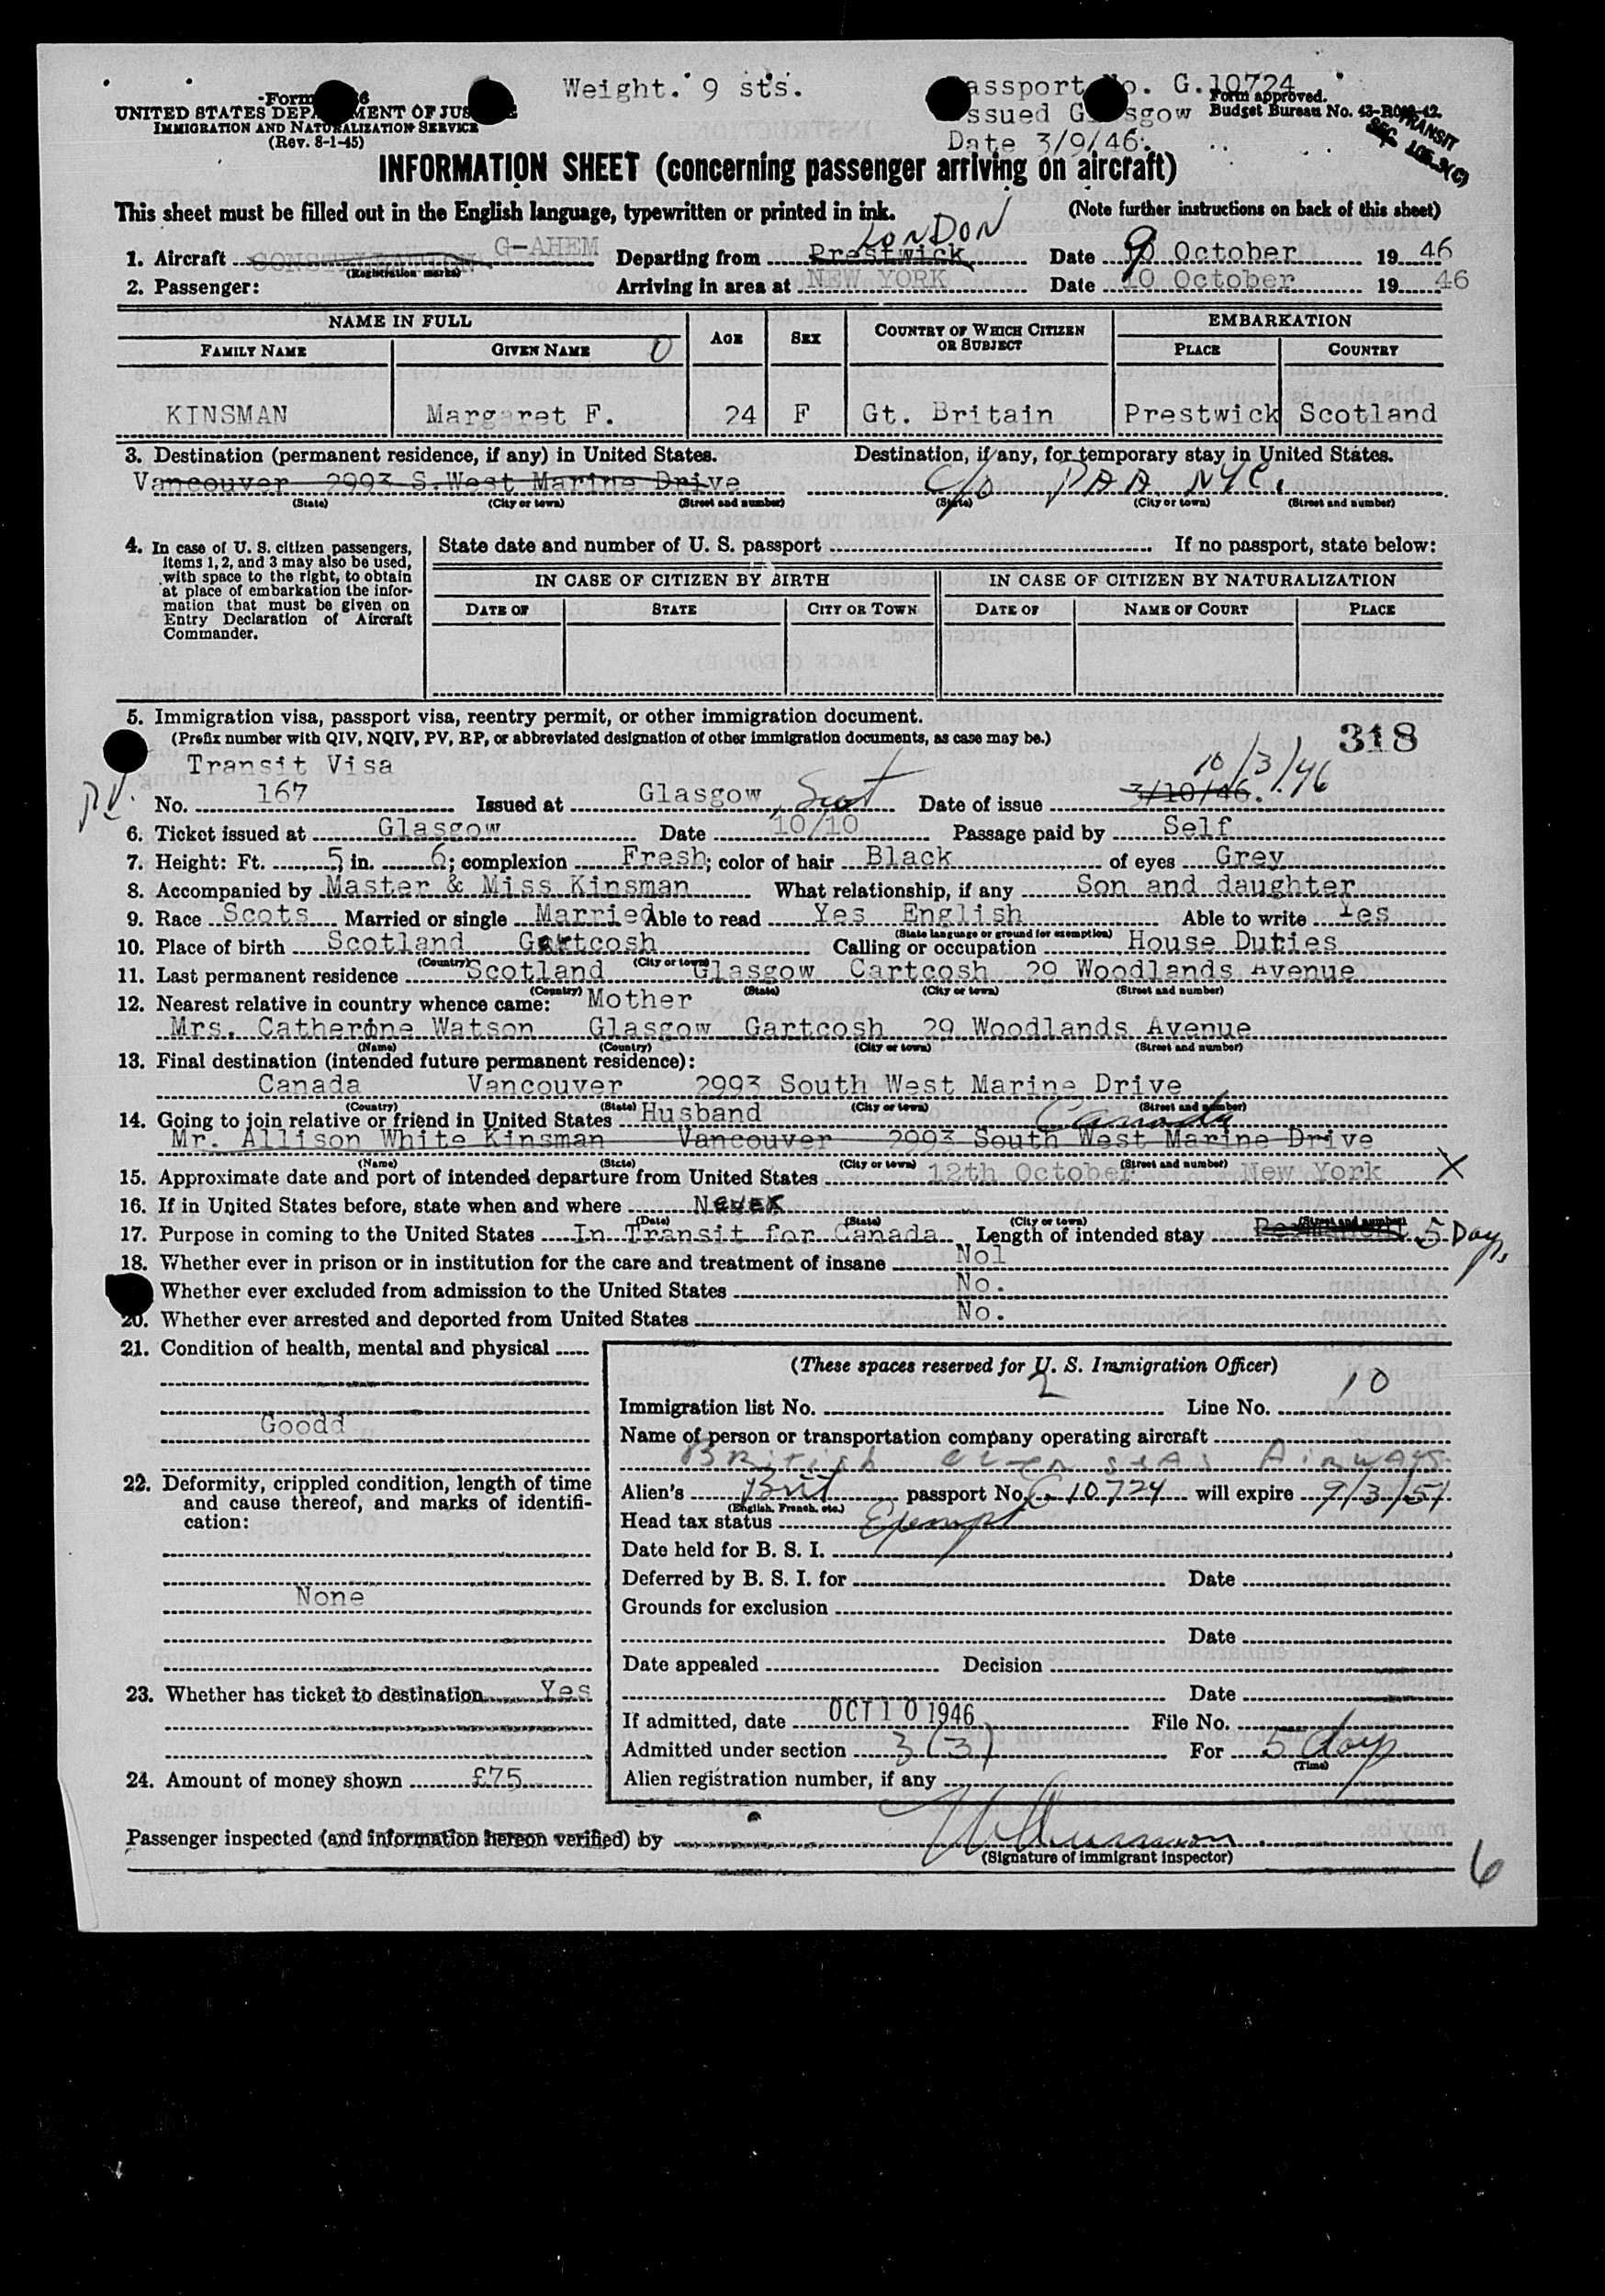 Weight. 9 sts.
Passport No. G.10724
Form
Form approved.
UNITED STATES DEPARTMENT OF JUSTICE
Issued Glasgow
Budget Bureau No. 43-R042-42.
IMMIGRATION AND NATURALIZATION SERVICE
(Rev. 8-1-45)
Date 3/9/46.
TRANSIT
SEC. 105.3(C)
INFORMATION SHEET (concerning passenger arriving on aircraft)
This sheet must be filled out in the English language, typewritten or printed in ink.
(Note further instructions on back of this sheet)
LONDON
1. Aircraft CONSTELLATION G-AHEM Departing from Prestwick Date 9 October 1946
(Registration marks)
2. Passenger: Arriving in area at NEW YORK Date 10 October 1946
NAME IN FULL AGE SEX COUNTRY OF WHICH CITIZEN OR SUBJECT EMBARKATION
FAMILY NAME GIVEN NAME 0 PLACE COUNTRY
KINSMAN Margaret F. 24 F Gt. Britain Prestwick Scotland
3. Destination (permanent residence, if any) in United States. Destination, if any, for temporary stay in United States.
Vancouver 2993 S.West Marine Drive C/o PAA NYC.
(State) (City or town) (Street and number) (State) (City or town) (Street and number)
4. In case of U. S. citizen passengers, items 1, 2, and 3 may also be used, with space to the right, to obtain at place of embarkation the information that must be given on Entry Declaration of Aircraft Commander.
State date and number of U. S. passport If no passport, state below:
IN CASE OF CITIZEN BY BIRTH IN CASE OF CITIZEN BY NATURALIZATION
DATE OF STATE CITY OR TOWN DATE OF NAME OF COURT PLACE
5. Immigration visa, passport visa, reentry permit, or other immigration document.
(Prefix number with QIV, NQIV, PV, RP, or abbreviated designation of other immigration documents, as case may be.)
318
Transit Visa
10/3/46
PV.
No. 167 Issued at Glasgow, Scot Date of issue 3/10/46.
6. Ticket issued at Glasgow Date 10/10 Passage paid by Self
7. Height: Ft. 5 in. 6; complexion Fresh; color of hair Black of eyes Grey
8. Accompanied by Master & Miss Kinsman What relationship, if any Son and daughter
9. Race Scots Married or single Married Able to read Yes English Able to write Yes
(State language or ground for exemption)
10. Place of birth Scotland Gartcosh Calling or occupation House Duties
(Country) (City or town)
11. Last permanent residence Scotland Glasgow Cartcosh 29 Woodlands Avenue
(Country) (State) (City or town) (Street and number)
12. Nearest relative in country whence came: Mother
Mrs. Catherine Watson Glasgow Gartcosh 29 Woodlands Avenue
(Name) (Country) (City or town) (Street and number)
13. Final destination (intended future permanent residence):
Canada Vancouver 2993 South West Marine Drive
(Country) (State) (City or town) (Street and number)
14. Going to join relative or friend in United States Husband Canada
Mr. Allison White Kinsman Vancouver 2993 South West Marine Drive
(Name) (State) (City or town) (Street and number)
15. Approximate date and port of intended departure from United States 12th October New York X
16. If in United States before, state when and where NEVER
(Date) (State) (City or town) (Street and number)
17. Purpose in coming to the United States In Transit for Canada Length of intended stay 5 Days
18. Whether ever in prison or in institution for the care and treatment of insane Nol
Whether ever excluded from admission to the United States No.
20. Whether ever arrested and deported from United States No.
21. Condition of health, mental and physical
Goodd
22. Deformity, crippled condition, length of time and cause thereof, and marks of identification:
None
23. Whether has ticket to destination Yes
24. Amount of money shown £75
(These spaces reserved for U. S. Immigration Officer)
Immigration list No. 2 Line No. 10
Name of person or transportation company operating aircraft
British Overseas Airways
Alien's Brit passport No. G 10724 will expire 9/3/51
(English, French, etc.)
Head tax status Exempt
Date held for B. S. I.
Deferred by B. S. I. for Date
Grounds for exclusion
Date
Date appealed Decision
Date
If admitted, date OCT 10 1946 File No.
Admitted under section 3(3) For 5 days
(Time)
Alien registration number, if any
Passenger inspected (and information hereon verified) by
(Signature of immigrant inspector)
6